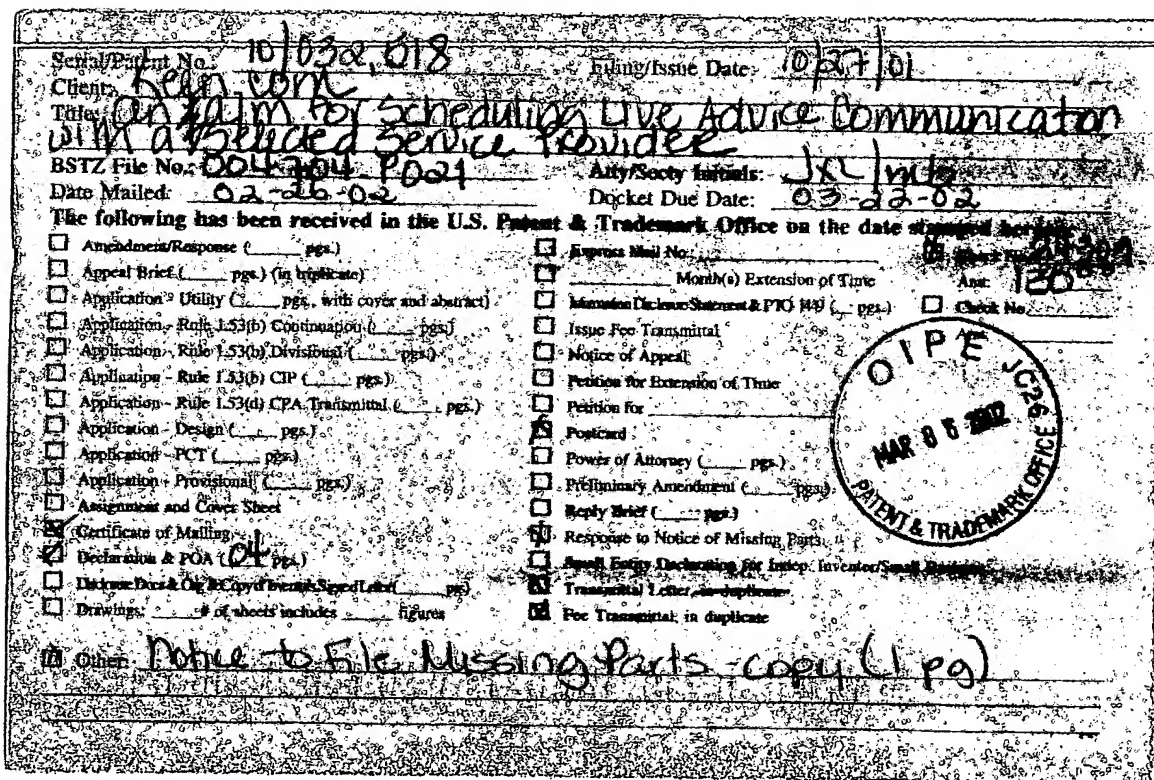 Serial/Patent No.: 10/032,018 Filing/Issue Date: 10/27/01
Client: Keen.com
Title: for Scheduling Live Advice Communication
with a Selected Service Provider
BSTZ File No.: 004704.P021 Atty/Secty Initials:
Date Mailed: 02-26-02 Docket Due Date: 03-22-02
The following has been received in the U.S. Patent & Trademark Office on the date stamped hereon:
Amendment/Response (____ pgs.)
Appeal Brief (____ pgs.) (in triplicate)
Application - Utility (____ pgs., with cover and abstract)
Application - Rule 1.53(b) Continuation (____ pgs.)
Application - Rule 1.53(b) Divisional (____ pgs.)
Application - Rule 1.53(b) CIP (____ pgs.)
Application - Rule 1.53(d) CPA Transmittal (____ pgs.)
Application - Design (____ pgs.)
Application - PCT (____ pgs.)
Application - Provisional (____ pgs.)
Assignment and Cover Sheet
Certificate of Mailing
Declaration & POA (04 pgs.)
Disclosure Docs & Orig & Copy of Inventors Signed Letter (____ pgs.)
Drawings: ____ # of sheets includes ____ figures
Other: Notice to File Missing Parts - copy (1 pg)
Express Mail No.:
____ Month(s) Extension of Time
Information Disclosure Statement & PTO 1449 (____ pgs.)
Issue Fee Transmittal
Notice of Appeal
Petition for Extension of Time
Petition for
Postcard
Power of Attorney (____ pgs.)
Preliminary Amendment (____ pgs.)
Reply Brief (____ pgs.)
Response to Notice of Missing Parts
Small Entity Declaration for Indep. Inventor/Small Business
Transmittal Letter, in duplicate
Fee Transmittal, in duplicate
Check No.
Amt: 130.00
Check No.
OIPE JC26
MAR 05 2002
PATENT & TRADEMARK OFFICE